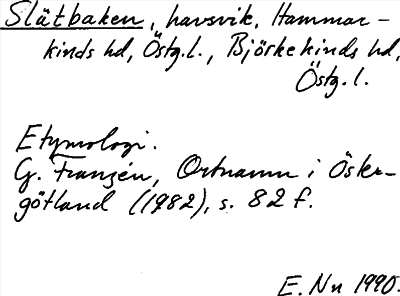 Slätbaken, havsvik, Hammar-
kinds hd, Östg.l., Björkekinds hd,
Östg.l.
Etymologi.
G. Franzén, Ortnamn i Öster-
götland (1982), s. 82 f.
E. Nn 1990.